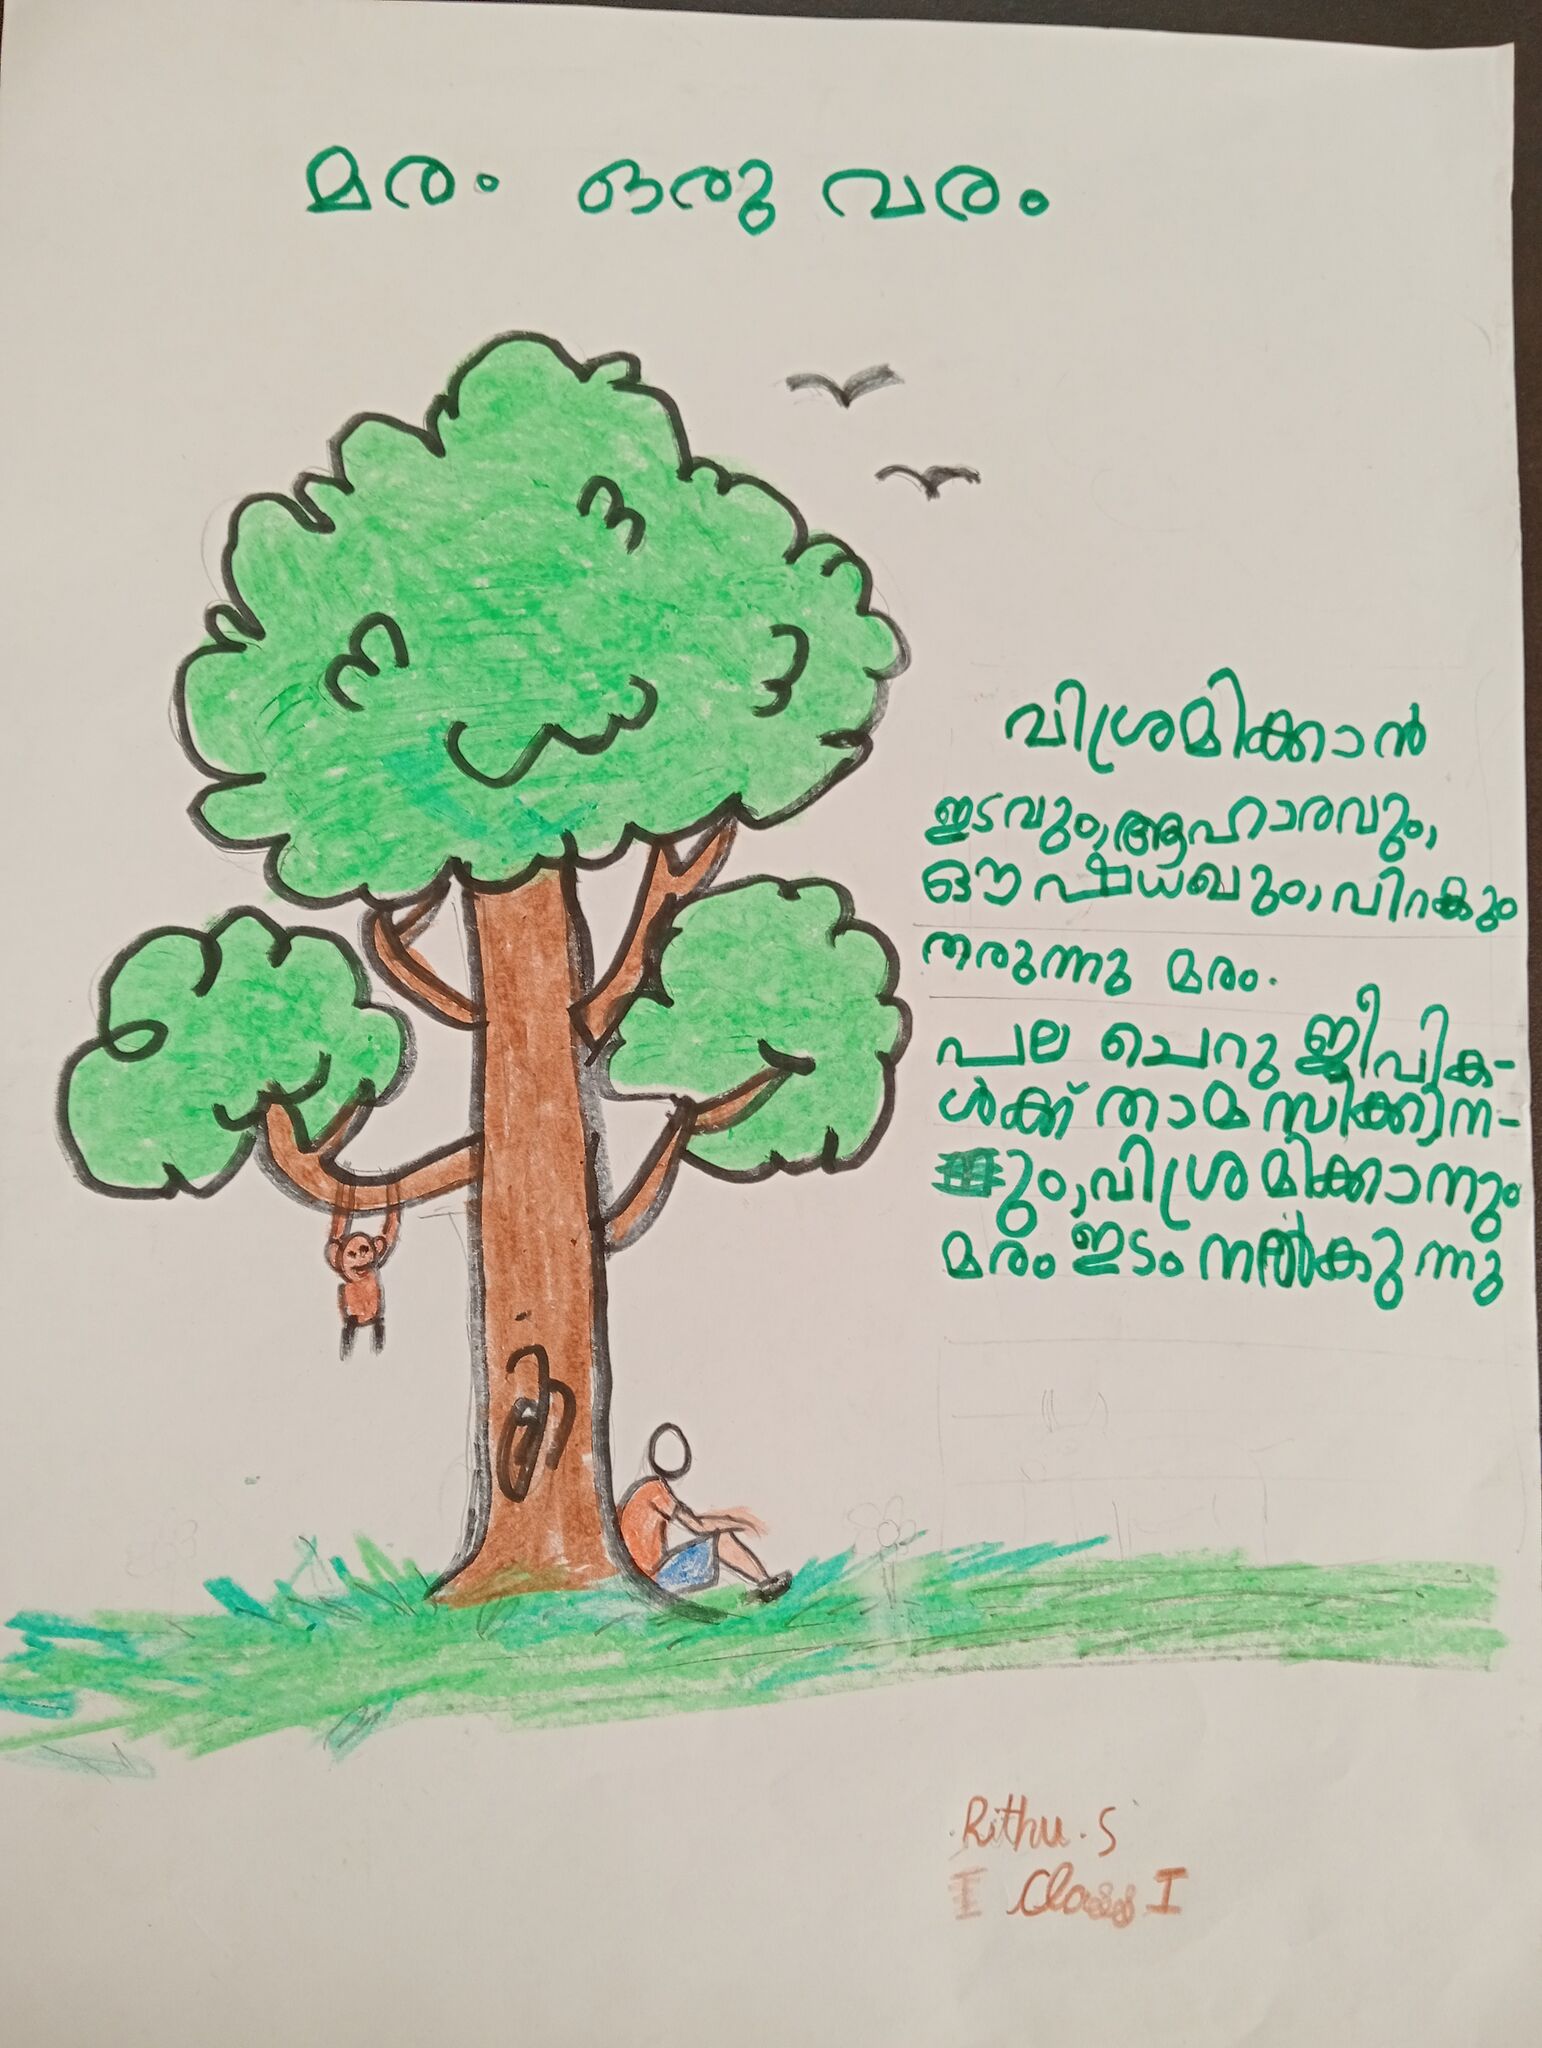 മരം ഒരു വരം
വിശ്രമിക്കാൻ
ഇടവും, ആഹാരവും,
ഔഷധവും, വിറകും
തരുന്നു മരം.
പല ചെറു ജീവിക-
ൾക്ക് താമസിക്കാന-
ും, വിശ്രമിക്കാനും
മരം ഇടം നൽകുന്നു
Rithu. S
I Class I